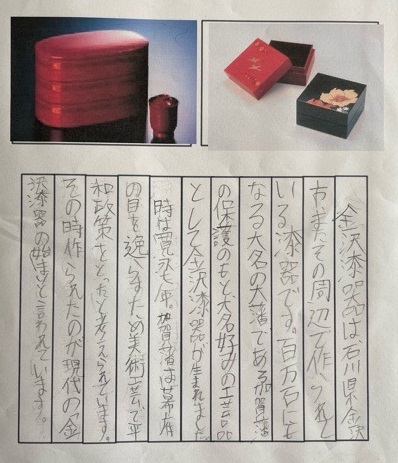 金沢漆器は、石川県金沢
市、またその周辺で作られて
いる漆器です。百万石にも
なる大名の大藩である加賀藩
の保護のもと大名好みの工芸品
として金沢漆器が生まれました。
時は寛永七年。加賀藩は幕府
の目を逸らすため美術工芸で平
和政策をとったと考えられています。
その時作られたのが現代の金
沢漆器の始まりと言われています。